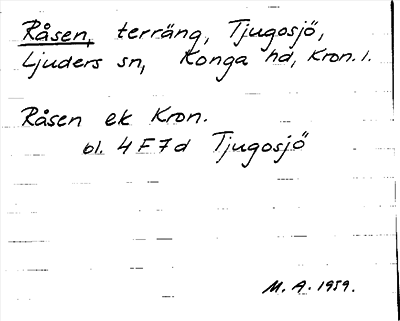 Råsen, terräng, Tjugosjö,
Ljuders sn, Konga hd, Kron. l.
Råsen ek Kron.
bl. 4F7d Tjugosjö
M. A. 1959.